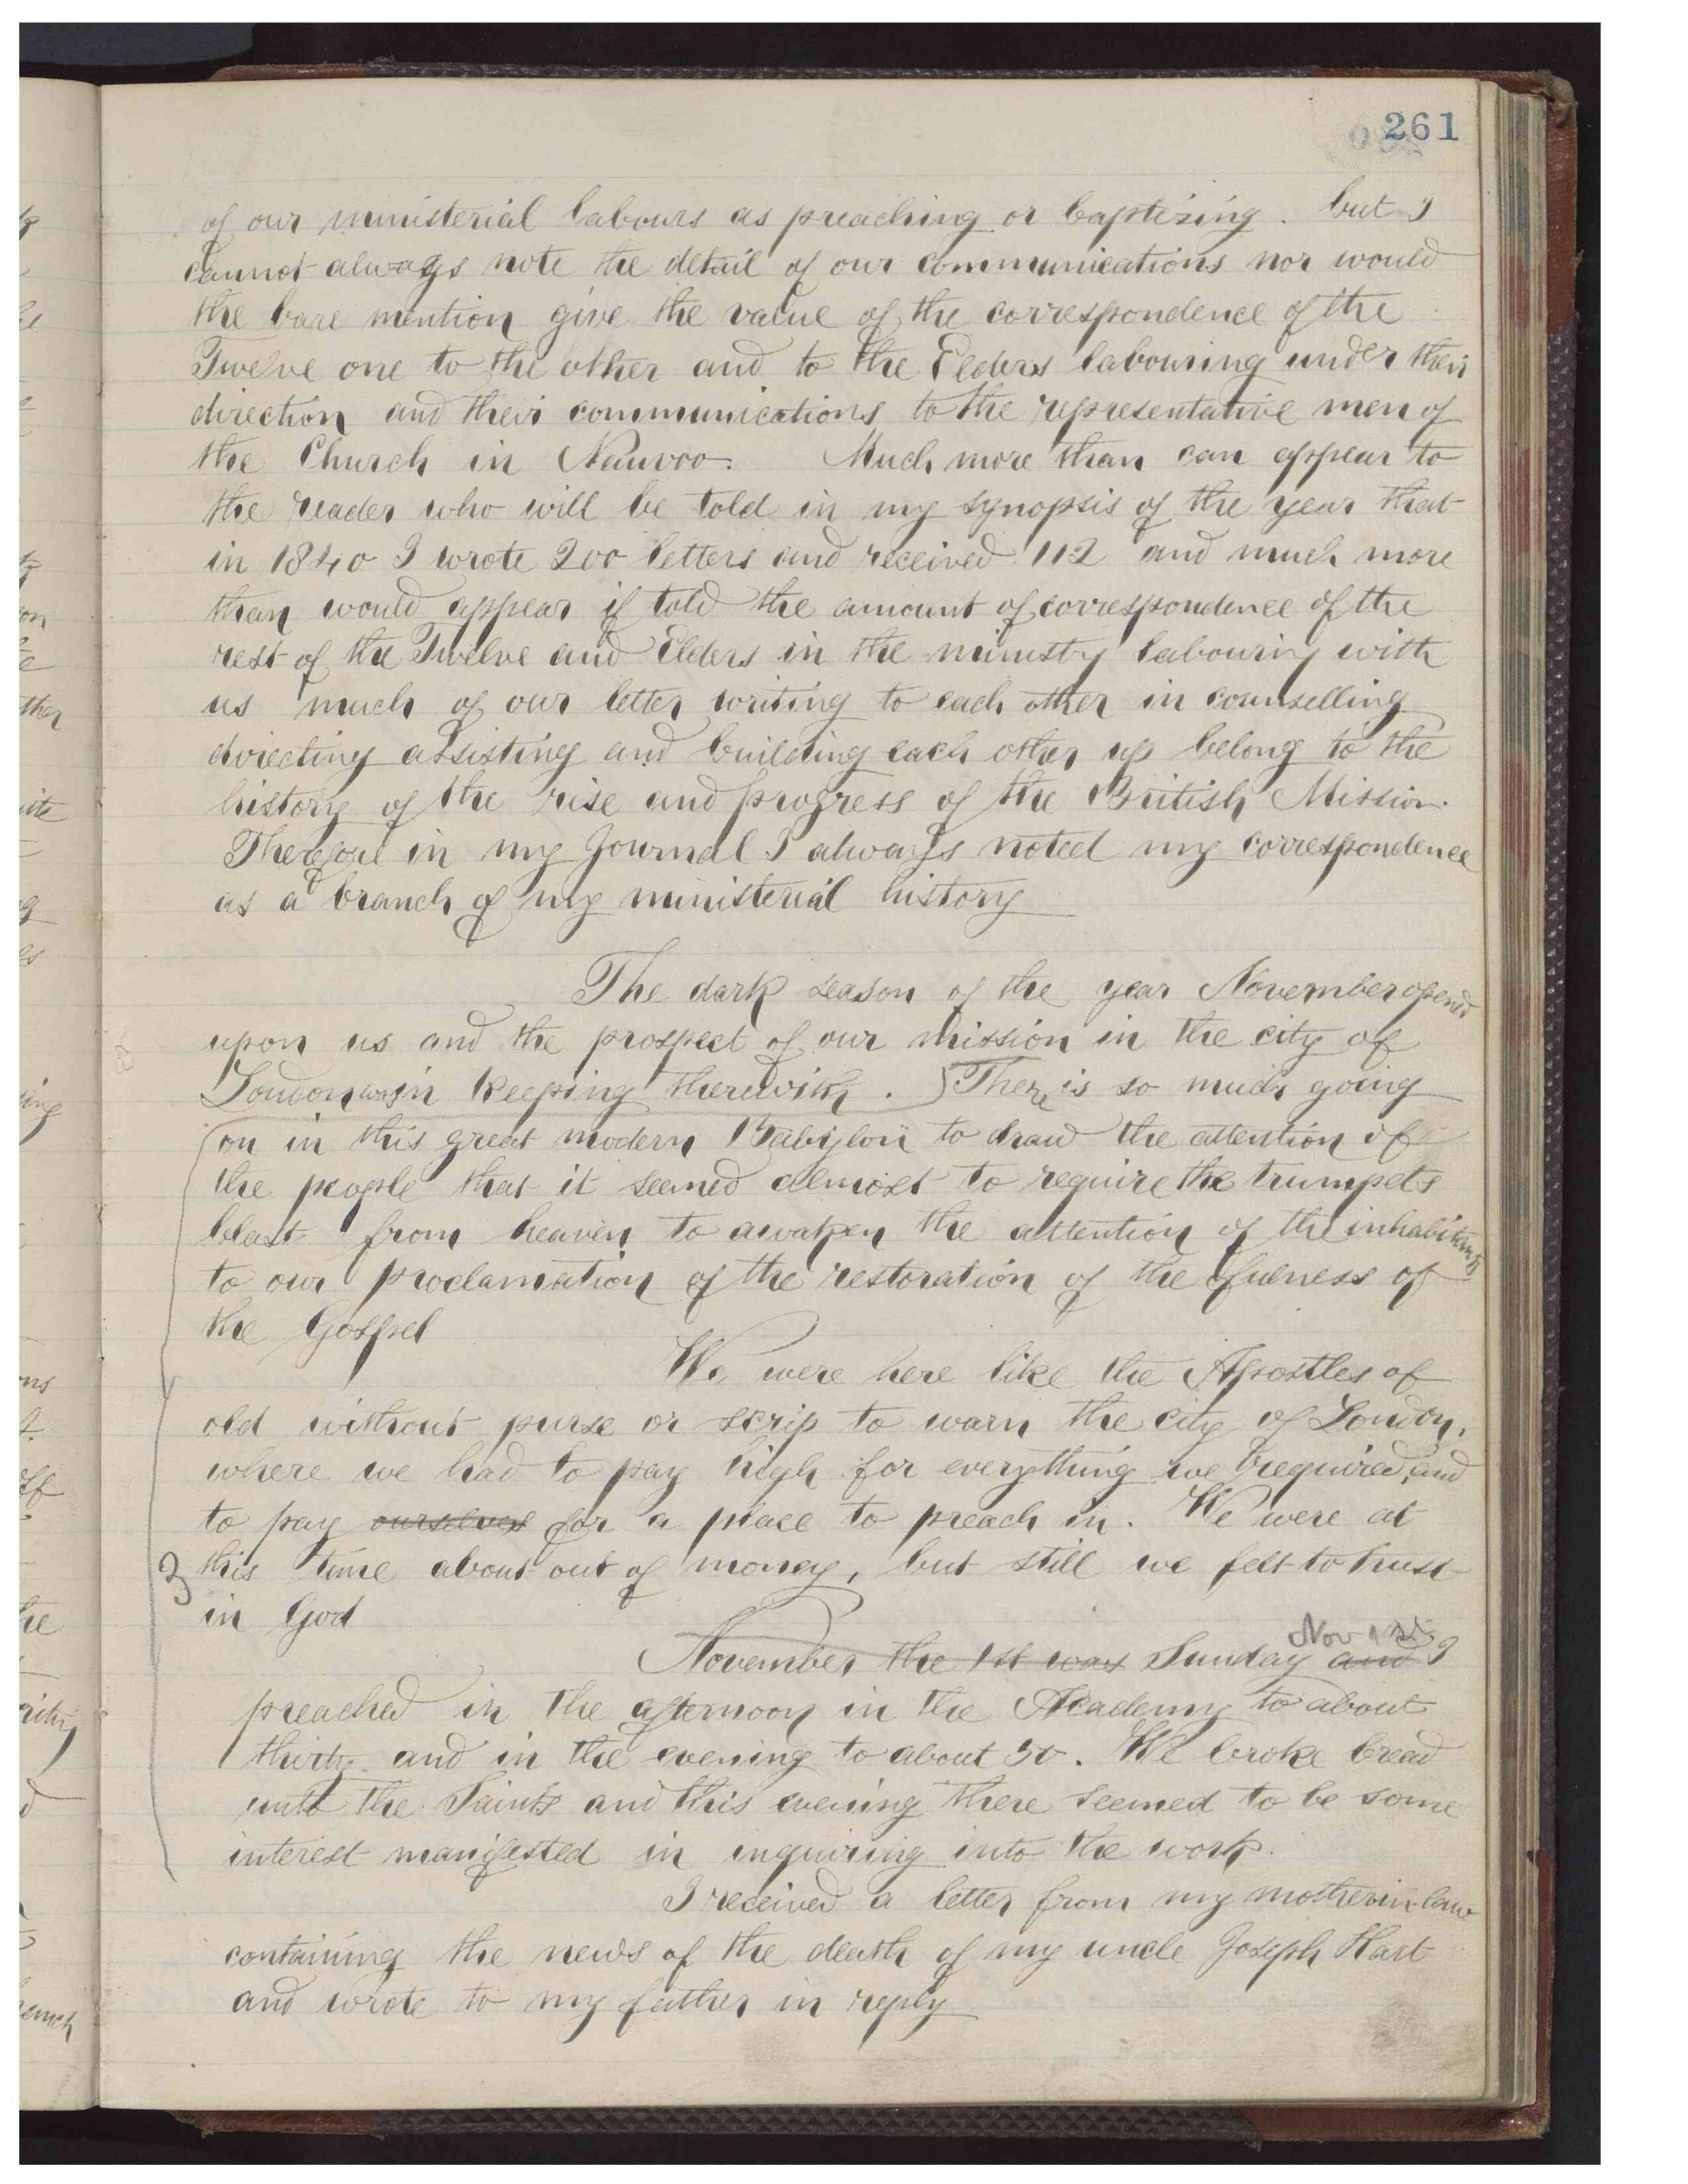 261
of our ministerial labours as preaching or baptizing. but I
cannot always note the detail of our communications nor would
the bare mention give the value of the correspondence of the
Twelve one to the other and to the Elders labouring under their
direction and their communications to the representative men of
the Church in Nauvoo. Much more than can appear to
the reader who will be told in my synopsis of the year that
in 1840 I wrote 200 letters and received 112 and much more
than would appear if told the amount of correspondence of the
rest of the Twelve and Elders in the ministry labouring with
us much of our letter writing to each other in counselling
directing assisting and building each other up belong to the
history of the rise and progress of the British Mission.
Therefore in my Journal I always noted my correspondence
as a branch of my ministerial history
The dark season of the year November opened
upon us and the prospect of our mission in the city of
London was in keeping therewith. There is so much going
on in this great modern Babylon to draw the attention of
the people that it seemed almost to require the trumpets
blast from heaven to awaken the attention of the inhabitants
to our proclamation of the restoration of the fulness of
the Gospel
We were here like the Apostles of
old without purse or scrip to warn the city of London,
where we had to pay high for everything we required, and
to pay ourselves for a place to preach in. We were at
3 this time about out of money, but still we felt to trust
in God
Nov 1st
November the 1st was Sunday and I
preached in the afternoon in the Academy to about
thirty and in the evening to about 50. We broke bread
unto the Saints and this evening there seemed to be some
interest manifested in inquiring into the work.
I received a letter from my mother in-law
containing the news of the death of my uncle Joseph Hart
and wrote to my father in reply